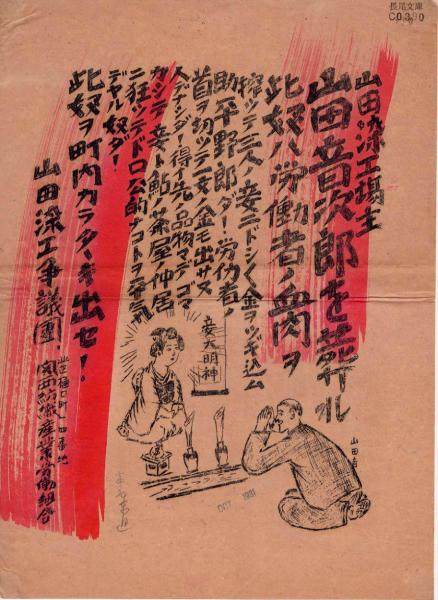 長尾文庫
山田染工場主
山田音次郎を葬ル
此奴ハ労働者ノ血肉ヲ
搾ツテ三人ノ妾ニドシ〱金ヲツギ込ム
助平野郎ダー労仂者ノ
首ヲ切ツテ一文ノ金モ出サヌ
人デナシダー得イ先ノ品物マデゴマ
カシテ妾ト鮎ノ茶屋仲居
ニ狂ツテドロ公的ナコトヲ平気
デヤル奴ダー
此奴ヲ町内カラタタキ出セ!
山田染工争議團
関西紡織産業労働組合
妾大明神
山田音
OCT 1931